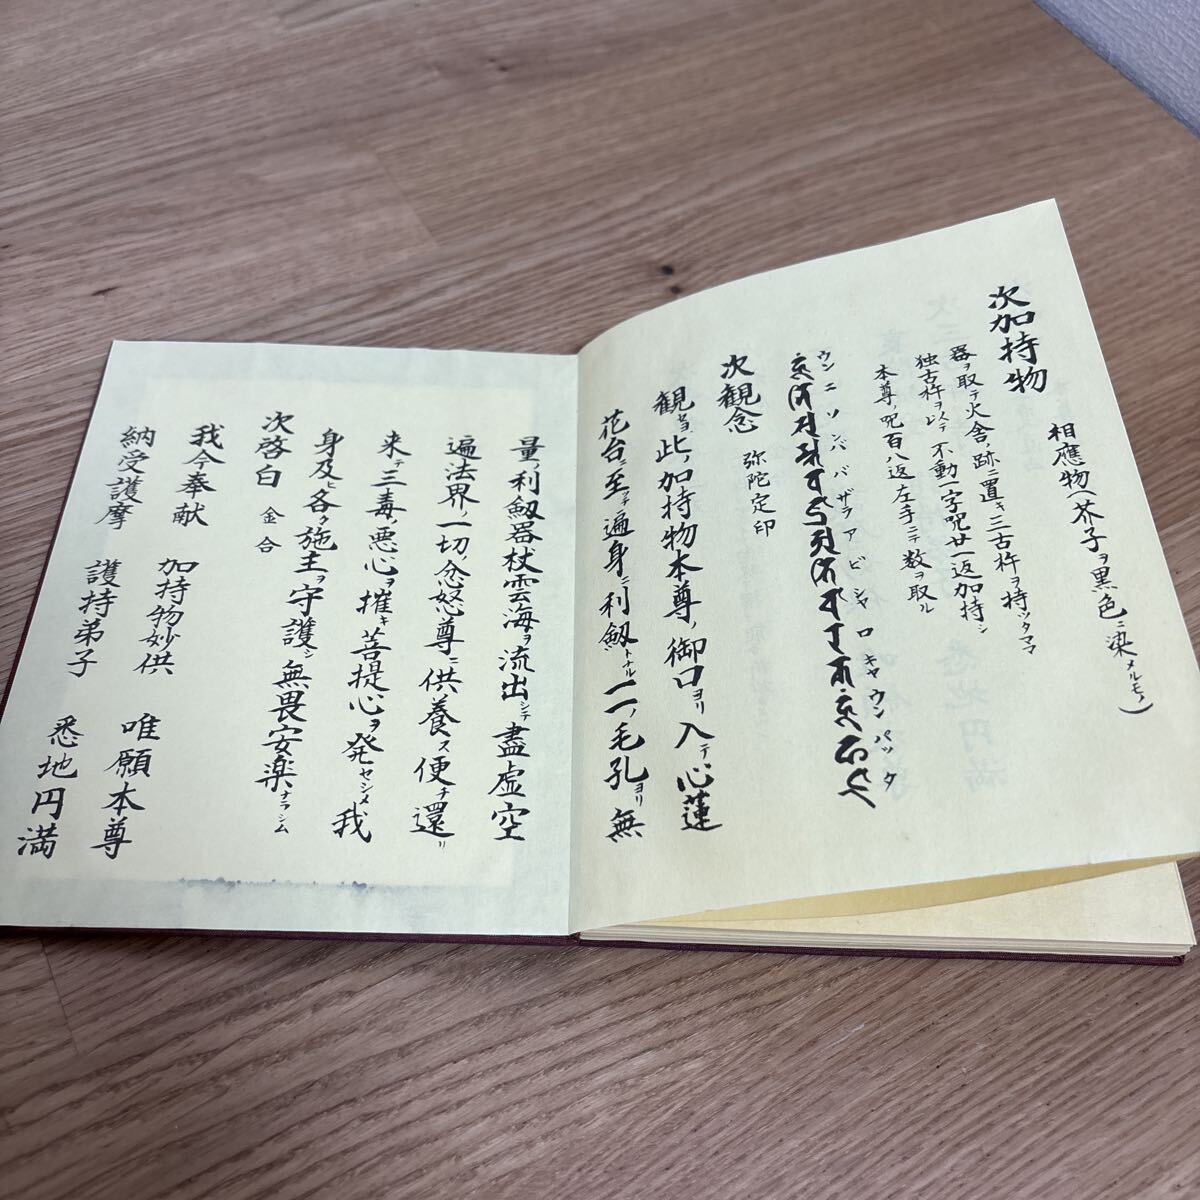 次加持物
相應物(芥子ヲ黒色ニ染メルモノ)
器ヲ取テ火舎ノ跡ニ置キ三古杵ヲ持ツタママ
独古杵ヲ以テ不動一字呪廿一返加持シ
本尊ノ呪百八返左手ニテ数ヲ取ル
ウンニソンババザラアビシャロキャウンパッタ
次観念 弥陀定印
観当此ノ加持物本尊ノ御口ヨリ入テ心蓮
花台ニ至テ遍身ニ利劔トナル一一ノ毛孔ヨリ無
量ノ利劔器杖雲海ヲ流出シテ盡虚空
遍法界ノ一切ノ忿怒尊ニ供養ス便チ還リ
来テ三毒ノ悪心ヲ摧キ菩提心ヲ発セシメ我
身及ヒ各ク施主ヲ守護シ無畏安楽ナラシム
次啓白 金合
我今奉献 加持物妙供 唯願本尊
納受護摩 護持弟子 悉地円満